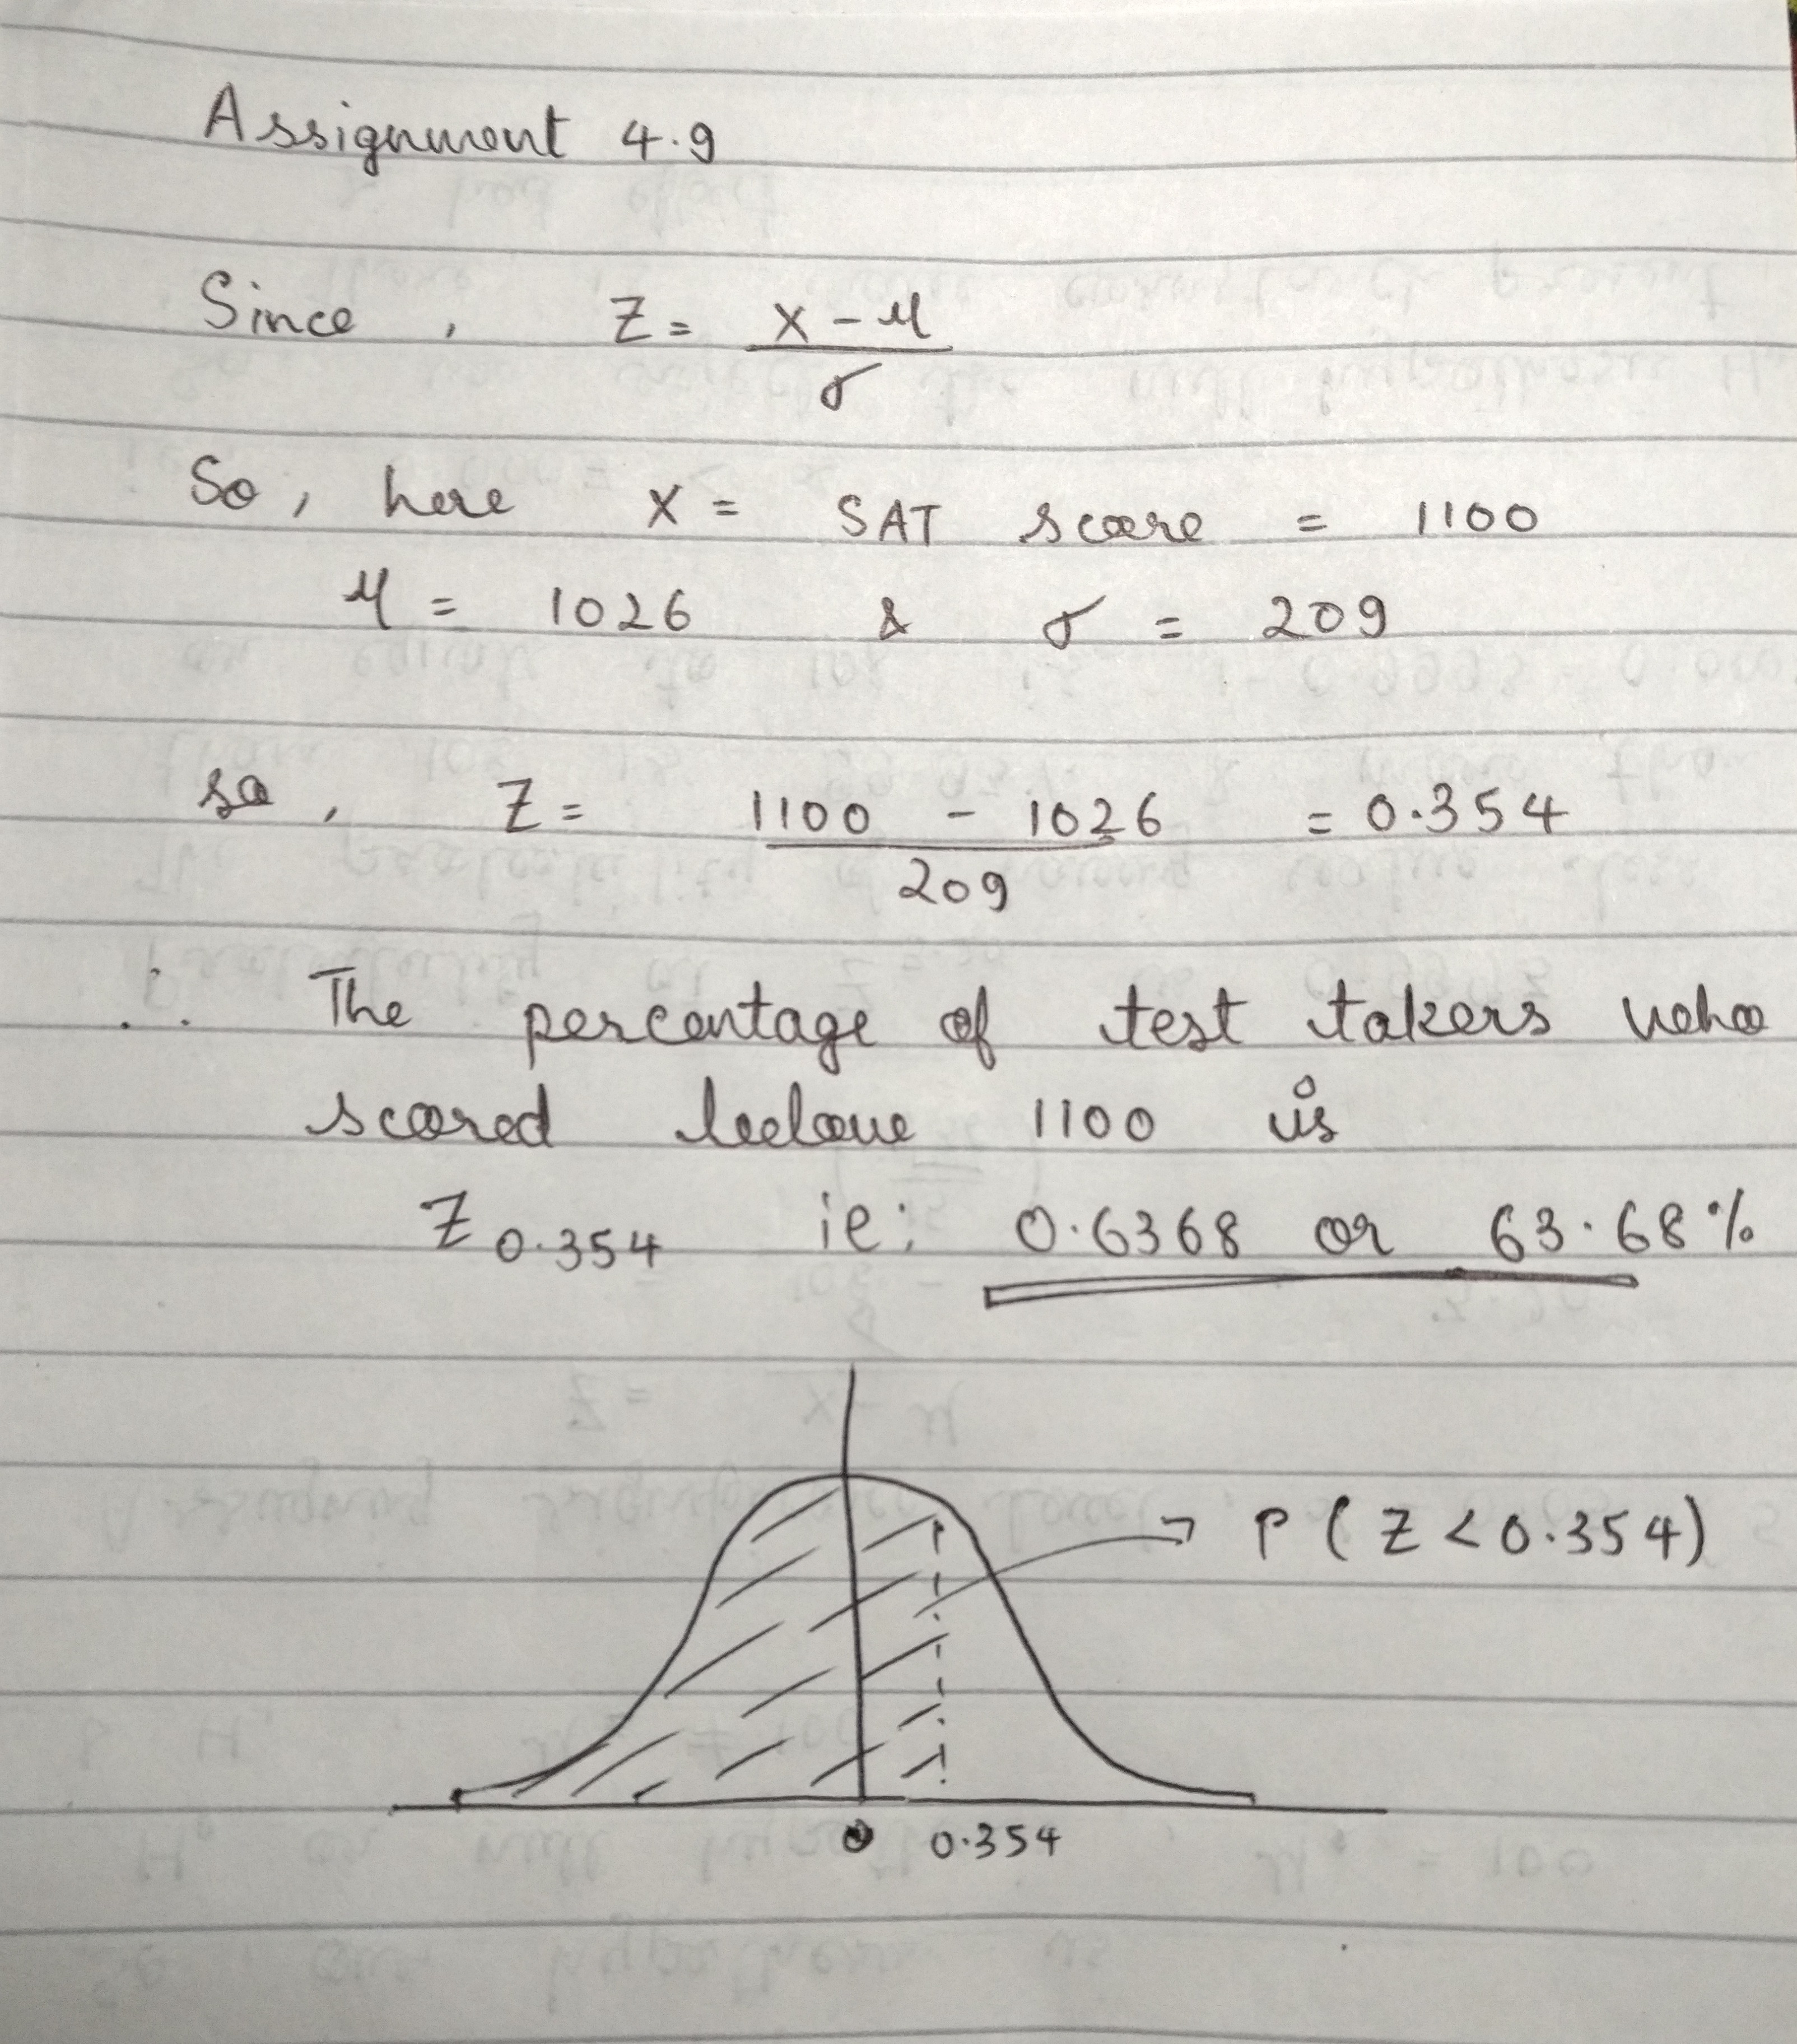 Assignment 4.9
Since, Z = X - μ / σ
So, here X = SAT score = 1100
μ = 1026 & σ = 209
so, Z = 1100 - 1026 / 209 = 0.354
∴ The percentage of test takers who
scored below 1100 is
Z 0.354 ie: 0.6368 or 63.68%
P(Z<0.354)
0 0.354